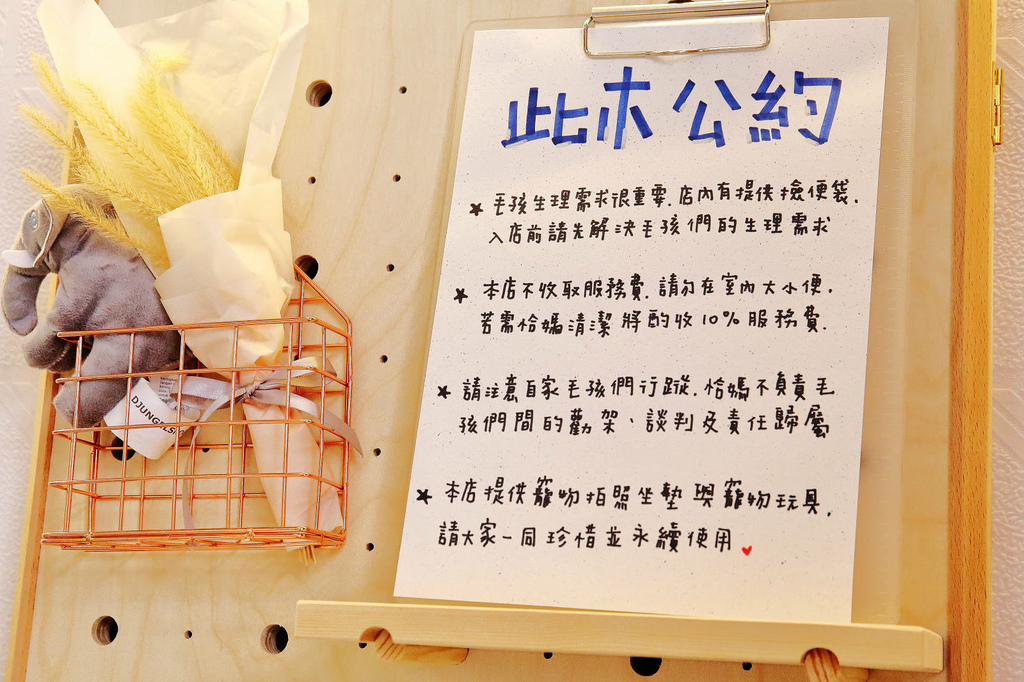 此木公約
★ 毛孩生理需求很重要.店內有提供撿便袋.
入店前請先解決毛孩們的生理需求
★ 本店不收取服務費.請勿在室內大小便.
若需恰媽清潔將酌收10%服務費.
★ 請注意自家毛孩們行蹤.恰媽不負責毛
孩們間的勸架、談判及責任歸屬
★ 本店提供寵物拍照坐墊與寵物玩具.
請大家一同珍惜並永續使用
DJUNGELSKOG